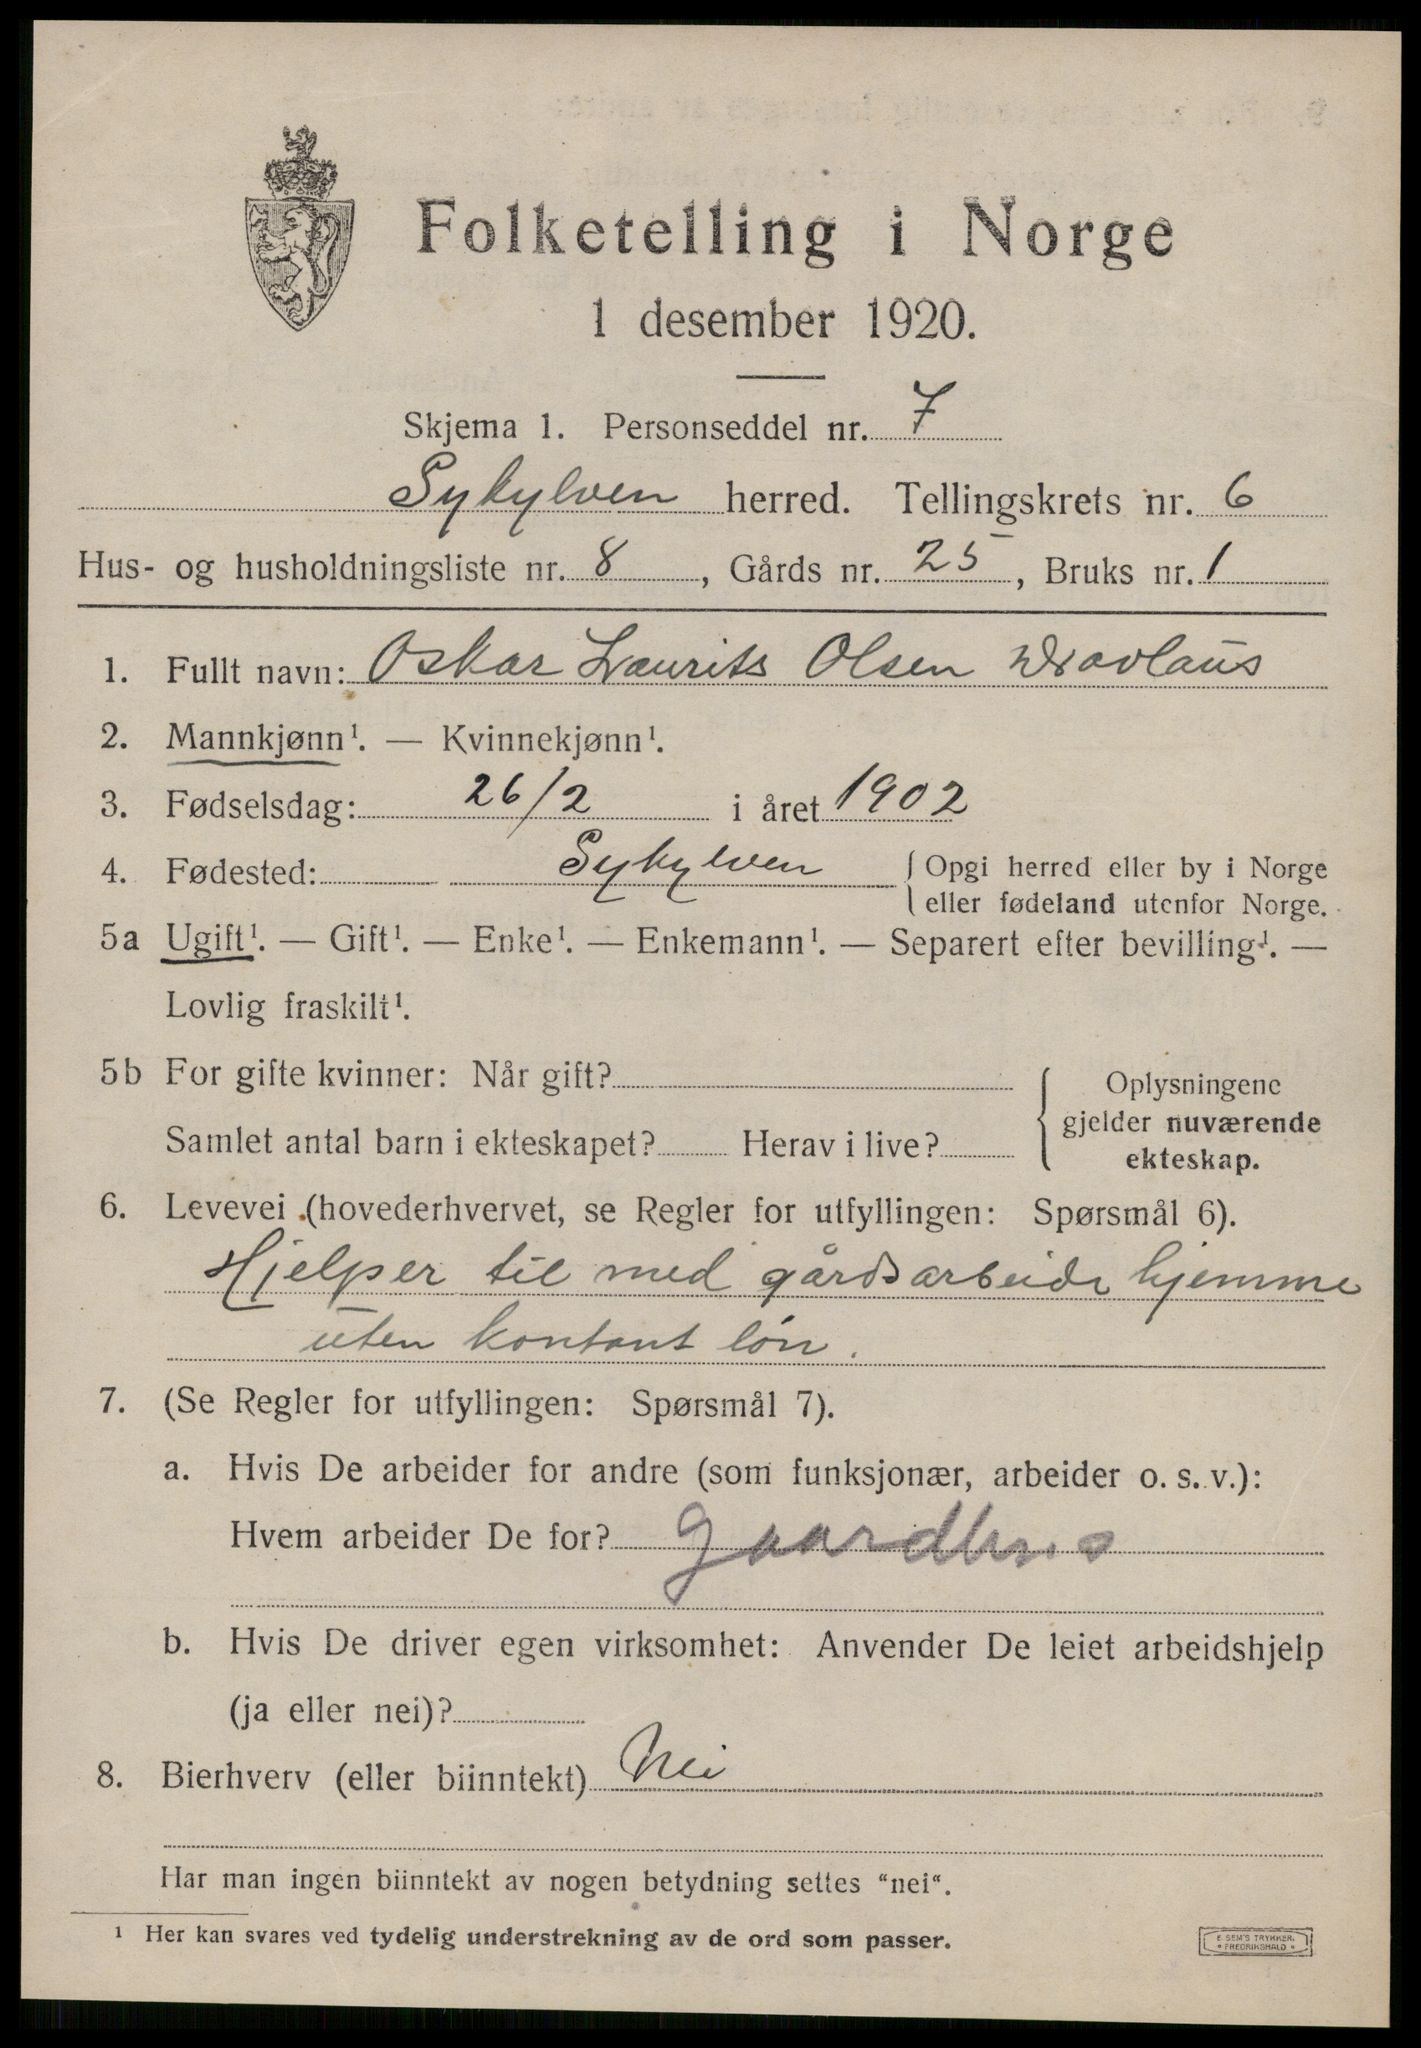 Folketelling i Norge
1 desember 1920.
Skjema 1. Personseddel nr. 7
Sykylven herred. Tellingskrets nr. 6
Hus- og husholdningsliste nr. 8, Gårds nr. 25, Bruks nr. 1
1. Fullt navn: Oskar Laurits Olsen
2. Mannkjønn¹. — Kvinnekjønn¹.
3. Fødselsdag: 26/2 i året 1902
4. Fødested: Sykylven { Opgi herred eller by i Norge
eller fødeland utenfor Norge.
5a Ugift¹. — Gift¹. — Enke¹. — Enkemann¹. — Separert efter bevilling¹. —
Lovlig fraskilt¹.
5b For gifte kvinner: Når gift?
Samlet antal barn i ekteskapet? Herav i live?
{ Oplysningene
gjelder nuværende
ekteskap.
6. Levevei (hovederhvervet, se Regler for utfyllingen: Spørsmål 6).
Hjelper til med gårdsarbeide hjemme
uten kontant lön.
7. (Se Regler for utfyllingen: Spørsmål 7).
a. Hvis De arbeider for andre (som funksjonær, arbeider o. s. v.):
Hvem arbeider De for?
b. Hvis De driver egen virksomhet: Anvender De leiet arbeidshjelp
(ja eller nei)?
8. Bierhverv (eller biinntekt) Nei
Har man ingen biinntekt av nogen betydning settes "nei".
¹ Her kan svares ved tydelig understrekning av de ord som passer.
E. SEM'S TRYKKERI
• FREDRIKSHALD •